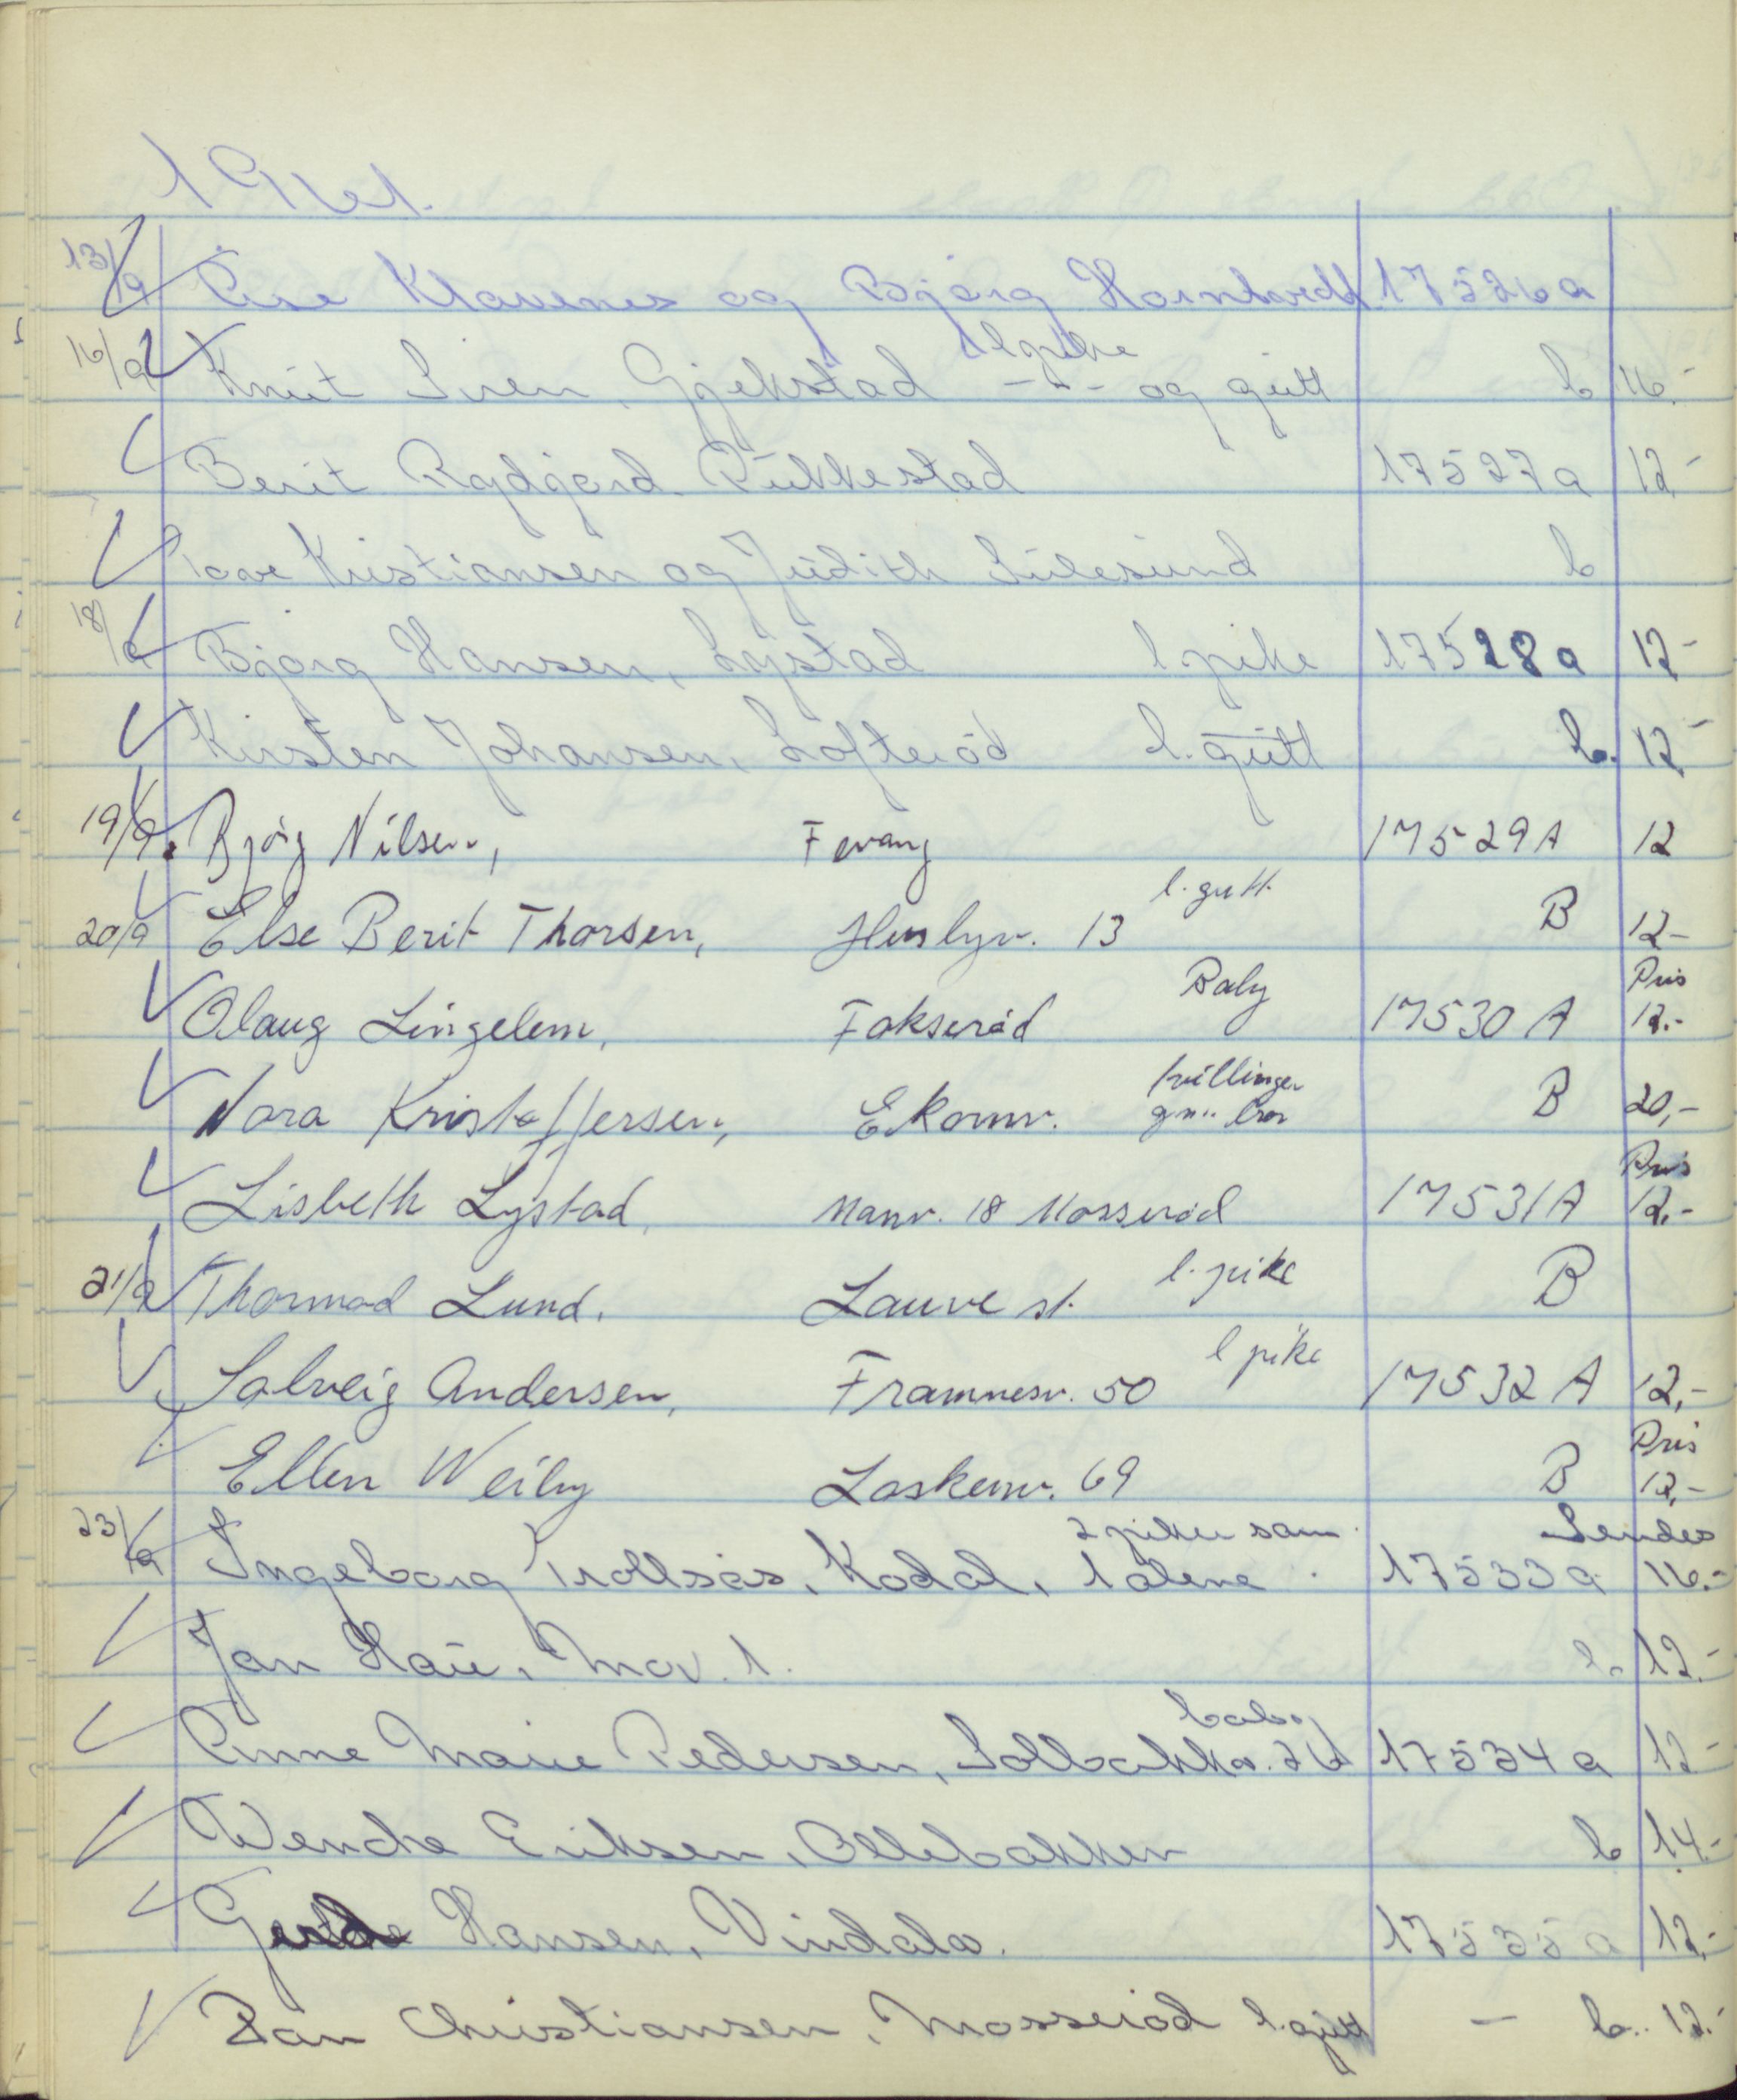 1961.
13/9 Åse Klavenes og Bjørg Hornhardt 17526a
l pike
16/9 Knut Siren, Gjekstad -"- og gutt b 16.-
Berit Rydgård Pukkestad 17527a 12-
Tove Kristiansen og Judith Sulesund b
18/9 Bjørg Hansen, Lystad l pike 17528a 12-
Kirsten Johansen, Lofterød l. gutt b. 12-
19/9 Bjørg Nilsen, Fevang 17529A 12
20/9 Else Berit Thorsen, Husbyv. 13 l. gutt. B 12-
Olaug Lingelem, Fokserød Baby 17530 A Pris 12.-
Nora Kristoffersen, Ekornv. tvillinger B 20,-
Lisbeth Lystad, Manv. 18 Mosserød 17531A Pris 12.-
21/9 Thormod Lund, Lauve st. l. pike B
Solveig Andersen, Framnesv. 50 l pike 17532 A 12,-
Ellen Weiby Laskenv. 69 B Pris 12,-
2 piker sam. Sendes
23/9 Ingeborg Trollsås, Kodal, 1 alene. 17533a 16.-
Jan Hau, Mov. 1. b. 12.-
baby
Anne Marie Pedersen, Solbakkv. 26 17534a 12-
Wenche Eriksen, Ollebakken b 14.-
Gerda Hansen, Vindalv. 17535a 12.-
Jan Christiansen, Mosserød l. gutt - b. 12.-